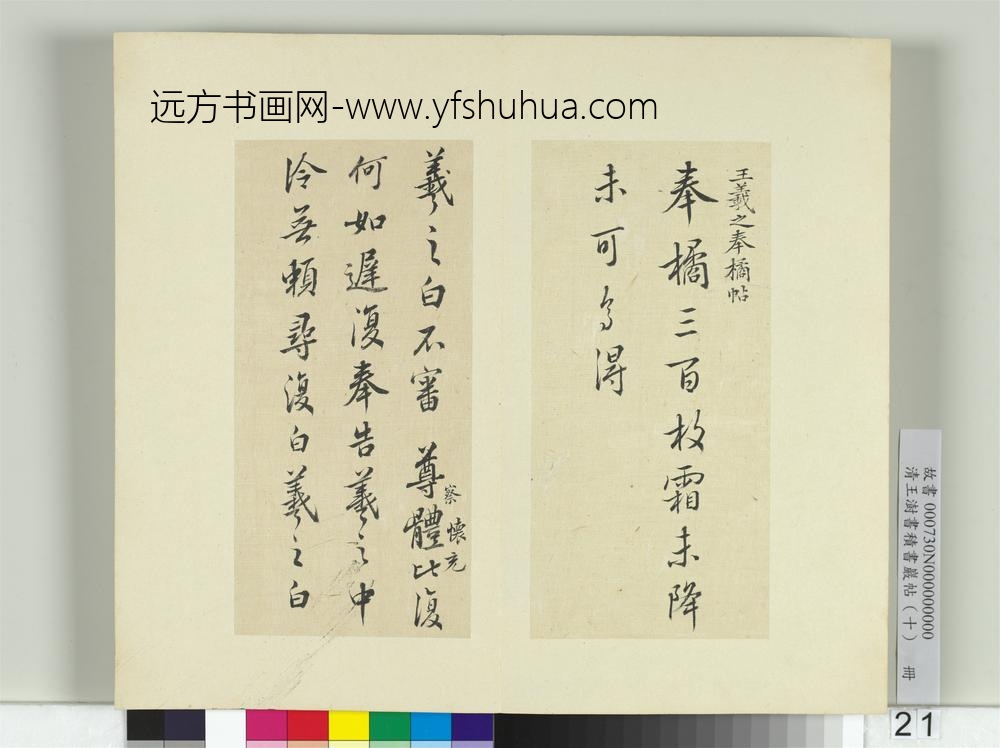 远方书画网-www.yfshuhua.com
王羲之奉橘帖
奉橘三百枚霜未降
未可多得
羲之白不審尊體比復
察懷充
何如遲復奉告羲之中
冷無賴尋復白羲之白
故書 000730N000000000
清王澍書積書巖帖(十) 冊
21